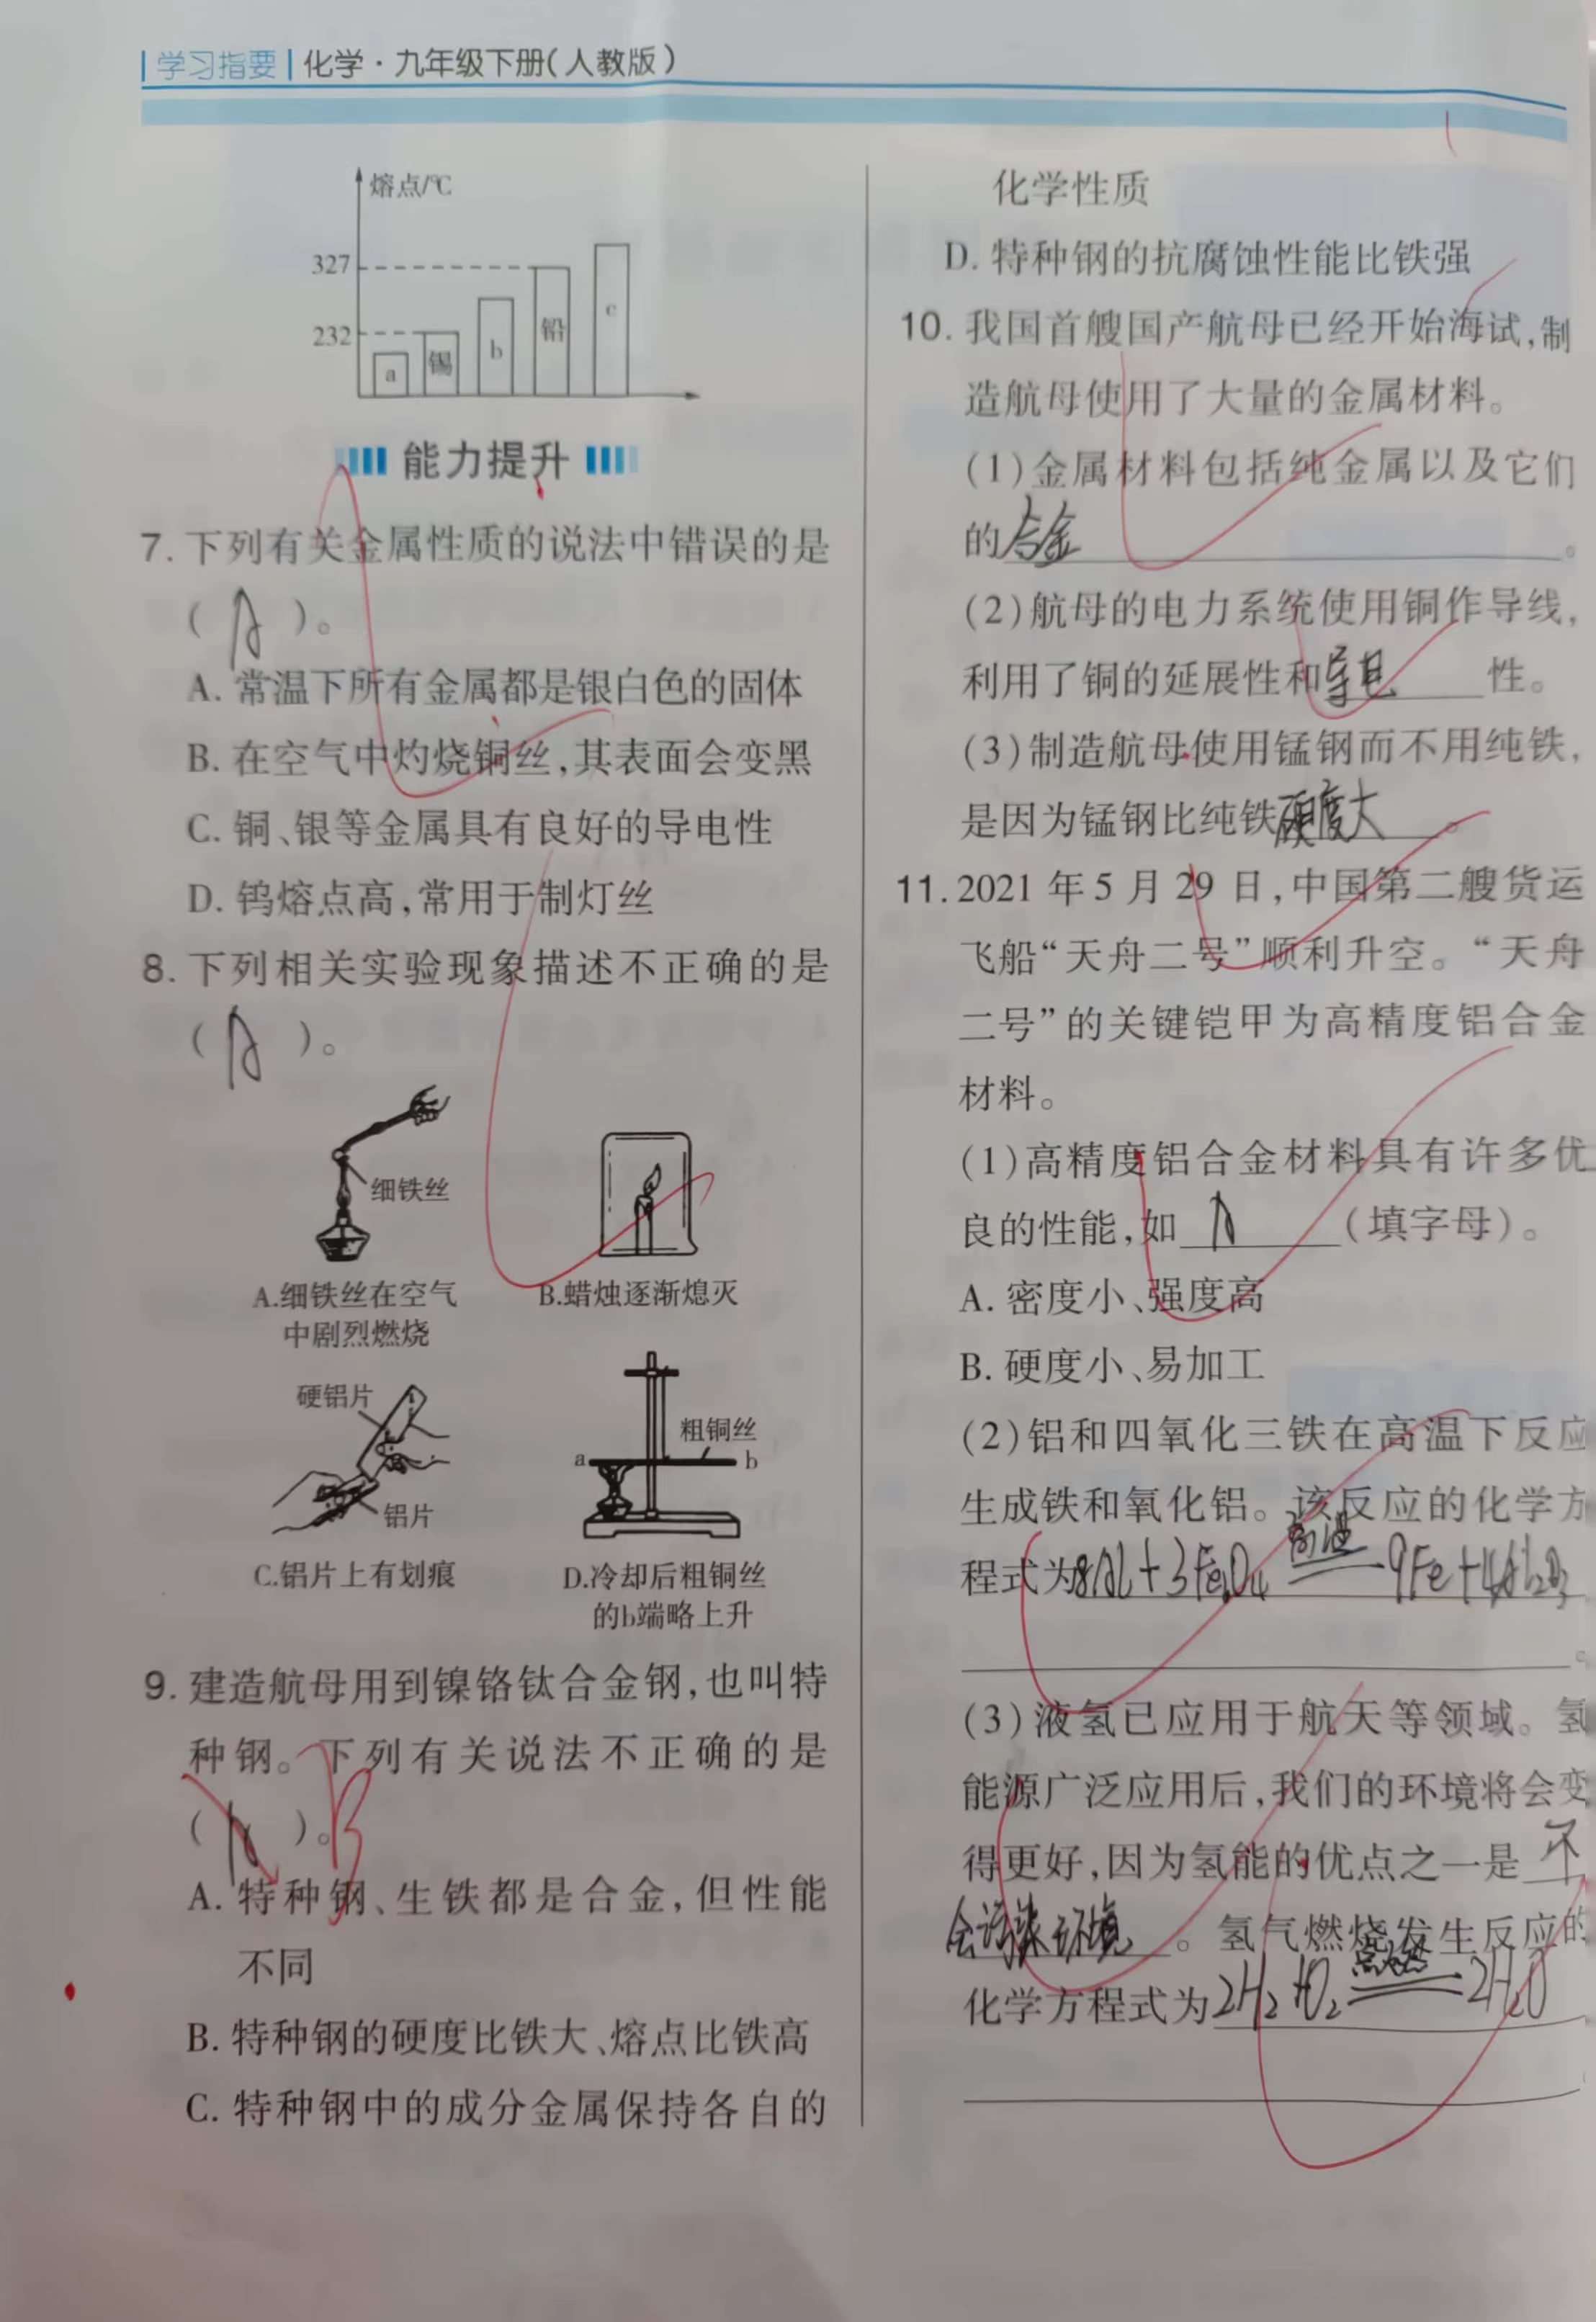 学习指要 化学·九年级下册(人教版)
熔点/℃
327
232
a
锡
b
铅
c
能力提升
7. 下列有关金属性质的说法中错误的是
( A )。
A. 常温下所有金属都是银白色的固体
B. 在空气中灼烧铜丝,其表面会变黑
C. 铜、银等金属具有良好的导电性
D. 钨熔点高,常用于制灯丝
8. 下列相关实验现象描述不正确的是
( A )。
细铁丝
A.细铁丝在空气
中剧烈燃烧
B.蜡烛逐渐熄灭
硬铝片
铝片
C.铝片上有划痕
粗铜丝
a
b
D.冷却后粗铜丝
的b端略上升
9. 建造航母用到镍铬钛合金钢,也叫特
种钢。下列有关说法不正确的是
( A )。B
A. 特种钢、生铁都是合金,但性能
不同
B. 特种钢的硬度比铁大、熔点比铁高
C. 特种钢中的成分金属保持各自的
化学性质
D. 特种钢的抗腐蚀性能比铁强
10. 我国首艘国产航母已经开始海试,制
造航母使用了大量的金属材料。
(1)金属材料包括纯金属以及它们
的合金。
(2)航母的电力系统使用铜作导线,
利用了铜的延展性和导电性。
(3)制造航母使用锰钢而不用纯铁,
是因为锰钢比纯铁硬度大。
11. 2021年5月29日,中国第二艘货运
飞船“天舟二号”顺利升空。“天舟
二号”的关键铠甲为高精度铝合金
材料。
(1)高精度铝合金材料具有许多优
良的性能,如 A (填字母)。
A. 密度小、强度高
B. 硬度小、易加工
(2)铝和四氧化三铁在高温下反应
生成铁和氧化铝。该反应的化学方
程式为8Al+3Fe3O4 高温 9Fe+4Al2O3
。
(3)液氢已应用于航天等领域。氢
能源广泛应用后,我们的环境将会变
得更好,因为氢能的优点之一是 不
会污染环境。氢气燃烧发生反应的
化学方程式为2H2+O2 点燃 2H2O